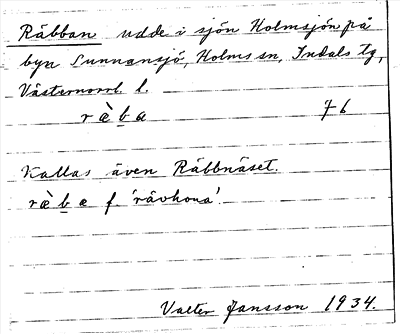 Räbban udde i sjön Holmsjön på
byn Sunnansjö, Holms sn, Indals tg,
Västernorrl. l.
ræ̀ba 76
Kallas även Räbbnäset.
ræ̀bæ f. 'rävhona'.
Valter Jansson 1934.